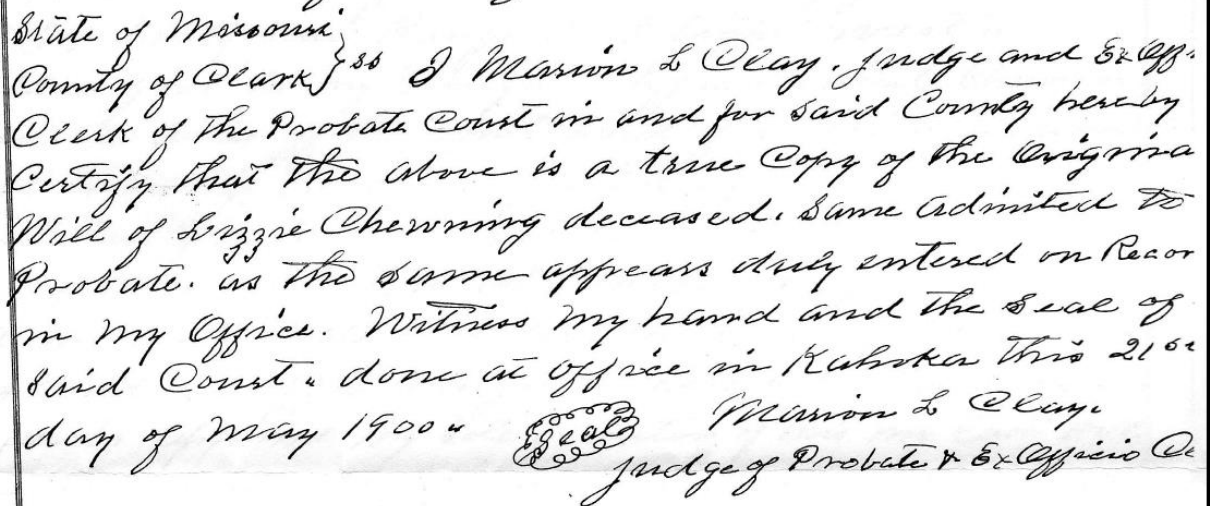 State of Missouri
County of Clark } ss I Marion L Clay. Judge and Ex Off.
Clerk of the Probate Court in and for said County hereby
Certify that the above is a true Copy of the Origina
Will of Lizzie Chewning deceased. Same admited to
Probate. as the same appears duly entered on Recor
in my Office. Witness my hand and the Seal of
said Court. done at office in Kahoka this 21st
day of May 1900. Seal Marion L Clay.
Judge of Probate & Ex Officio